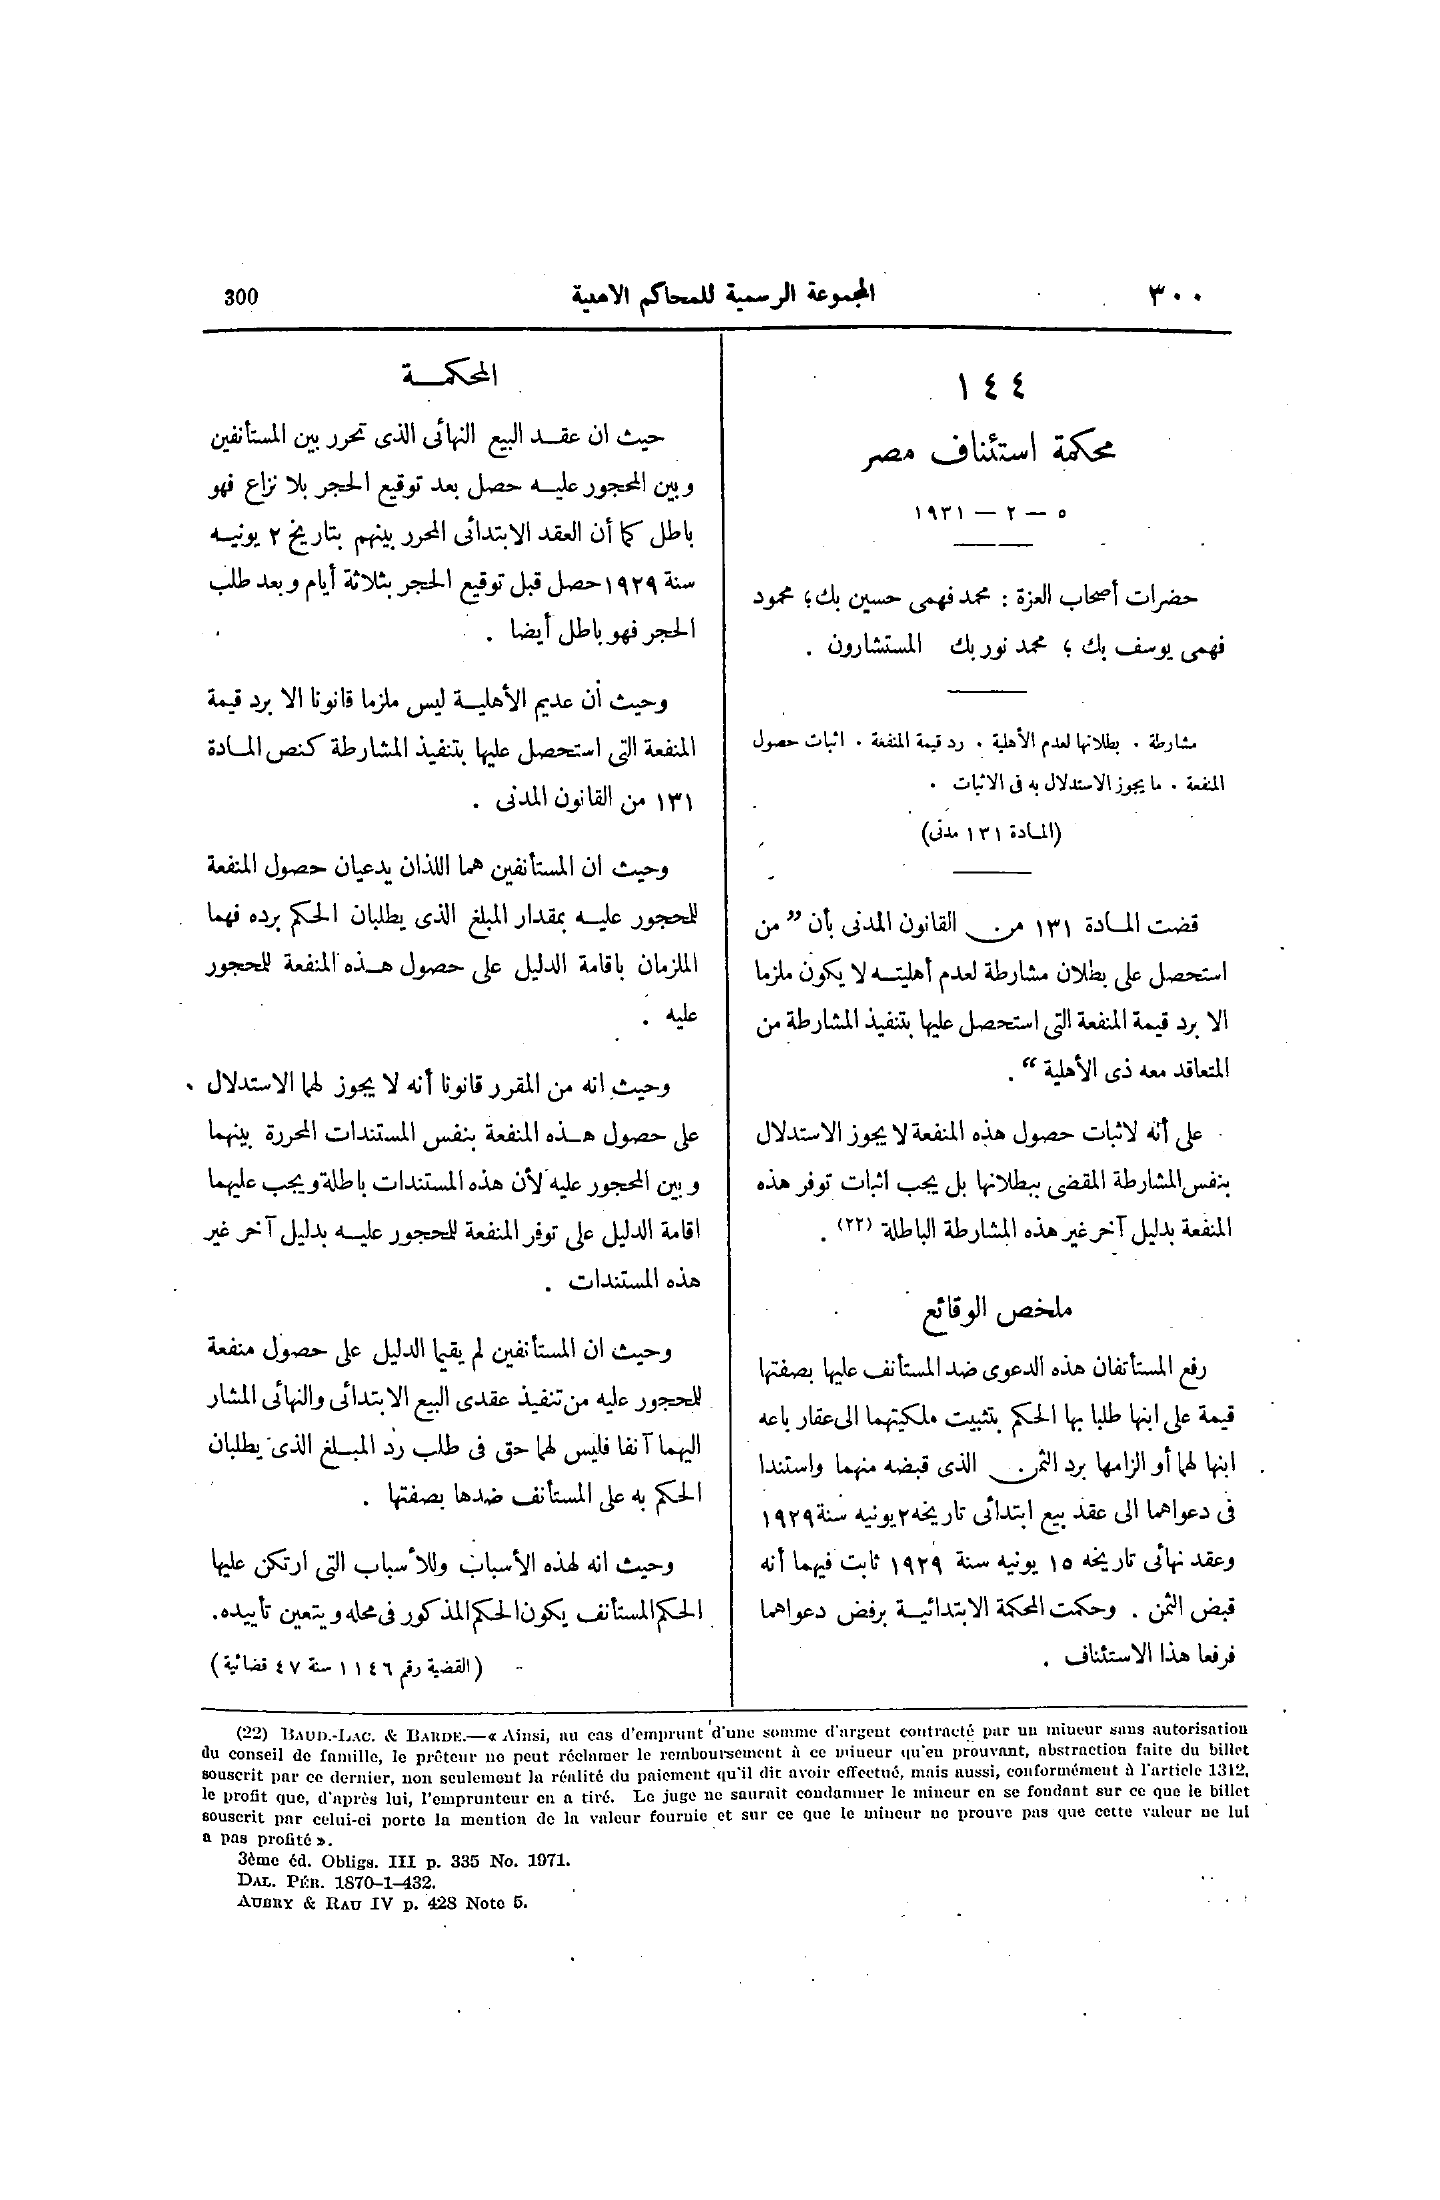 ٣٠٠ المجموعة الرسمية للمحاكم الاهلية 300
١٤٤
محكمة استئناف مصر
٥ — ٢ — ١٩٣١
حضرات أصحاب العزة : محمد فهمى حسين بك؛ محمود
فهمى يوسف بك ؛ محمد نور بك المستشارون .
مشارطة . بطلانها لعدم الأهلية . رد قيمة المنفعة . اثبات حصول
المنفعة . ما يجوز الاستدلال به فى الاثبات .
(المادة ١٣١ مدنى)
قضت المادة ١٣١ من القانون المدنى بأن ” من
استحصل على بطلان مشارطة لعدم أهليته لا يكون ملزما
الا برد قيمة المنفعة التى استحصل عليها بتنفيذ المشارطة من
المتعاقد معه ذى الأهلية “ .
على أنه لاثبات حصول هذه المنفعة لا يجوز الاستدلال
بنفس المشارطة المقضى ببطلانها بل يجب اثبات توفر هذه
المنفعة بدليل آخر غير هذه المشارطة الباطلة (٢٢) .
ملخص الوقائع
رفع المستأنفان هذه الدعوى ضد المستأنف عليها بصفتها
قيمة على ابنها طلبا بها الحكم بتثبيت ملكيتهما الى عقار باعه
ابنها لهما أو الزامها برد الثمن الذى قبضه منهما واستندا
فى دعواهما الى عقد بيع ابتدائى تاريخه ٢ يونيه سنة ١٩٢٩
وعقد نهائى تاريخه ١٥ يونيه سنة ١٩٢٩ ثابت فيهما أنه
قبض الثمن . وحكمت المحكمة الابتدائية برفض دعواهما
فرفعا هذا الاستئناف .
المحكمة
حيث ان عقد البيع النهائى الذى تحرر بين المستأنفين
وبين المحجور عليه حصل بعد توقيع الحجر بلا نزاع فهو
باطل كما أن العقد الابتدائى المحرر بينهم بتاريخ ٢ يونيه
سنة ١٩٢٩ حصل قبل توقيع الحجر بثلاثة أيام وبعد طلب
الحجر فهو باطل أيضا .
وحيث أن عديم الأهلية ليس ملزما قانونا الا برد قيمة
المنفعة التى استحصل عليها بتنفيذ المشارطة كنص المادة
١٣١ من القانون المدنى .
وحيث ان المستأنفين هما اللذان يدعيان حصول المنفعة
للمحجور عليه بمقدار المبلغ الذى يطلبان الحكم برده فهما
الملزمان باقامة الدليل على حصول هذه المنفعة للمحجور
عليه .
وحيث انه من المقرر قانونا أنه لا يجوز لهما الاستدلال
على حصول هذه المنفعة بنفس المستندات المحررة بينهما
وبين المحجور عليه لأن هذه المستندات باطلة ويجب عليهما
اقامة الدليل على توفر المنفعة للمحجور عليه بدليل آخر غير
هذه المستندات .
وحيث ان المستأنفين لم يقيما الدليل على حصول منفعة
للمحجور عليه من تنفيذ عقدى البيع الابتدائى والنهائى المشار
اليهما آنفا فليس لهما حق فى طلب رد المبلغ الذى يطلبان
الحكم به على المستأنف ضدها بصفتها .
وحيث انه لهذه الأسباب وللأسباب التى ارتكن عليها
الحكم المستأنف يكون الحكم المذكور فى محله ويتعين تأييده.
(القضية رقم ١١٤٦ سنة ٤٧ قضائية)
(22) BAUD.-LAC. & BARDE.—« Ainsi, au cas d'emprunt d'une somme d'argent contracté par un mineur sans autorisation
du conseil de famille, le prêteur ne peut réclamer le remboursement à ce mineur qu'en prouvant, abstraction faite du billet
souscrit par ce dernier, non seulement la réalité du paiement qu'il dit avoir effectué, mais aussi, conformément à l'article 1312,
le profit que, d'après lui, l'emprunteur en a tiré. Le juge ne saurait condamner le mineur en se fondant sur ce que le billet
souscrit par celui-ci porte la mention de la valeur fournie et sur ce que le mineur ne prouve pas que cette valeur ne lui
a pas profité ».
3ème éd. Obligs. III p. 335 No. 1971.
DAL. PÉR. 1870-1-432.
AUBRY & RAU IV p. 428 Note 5.